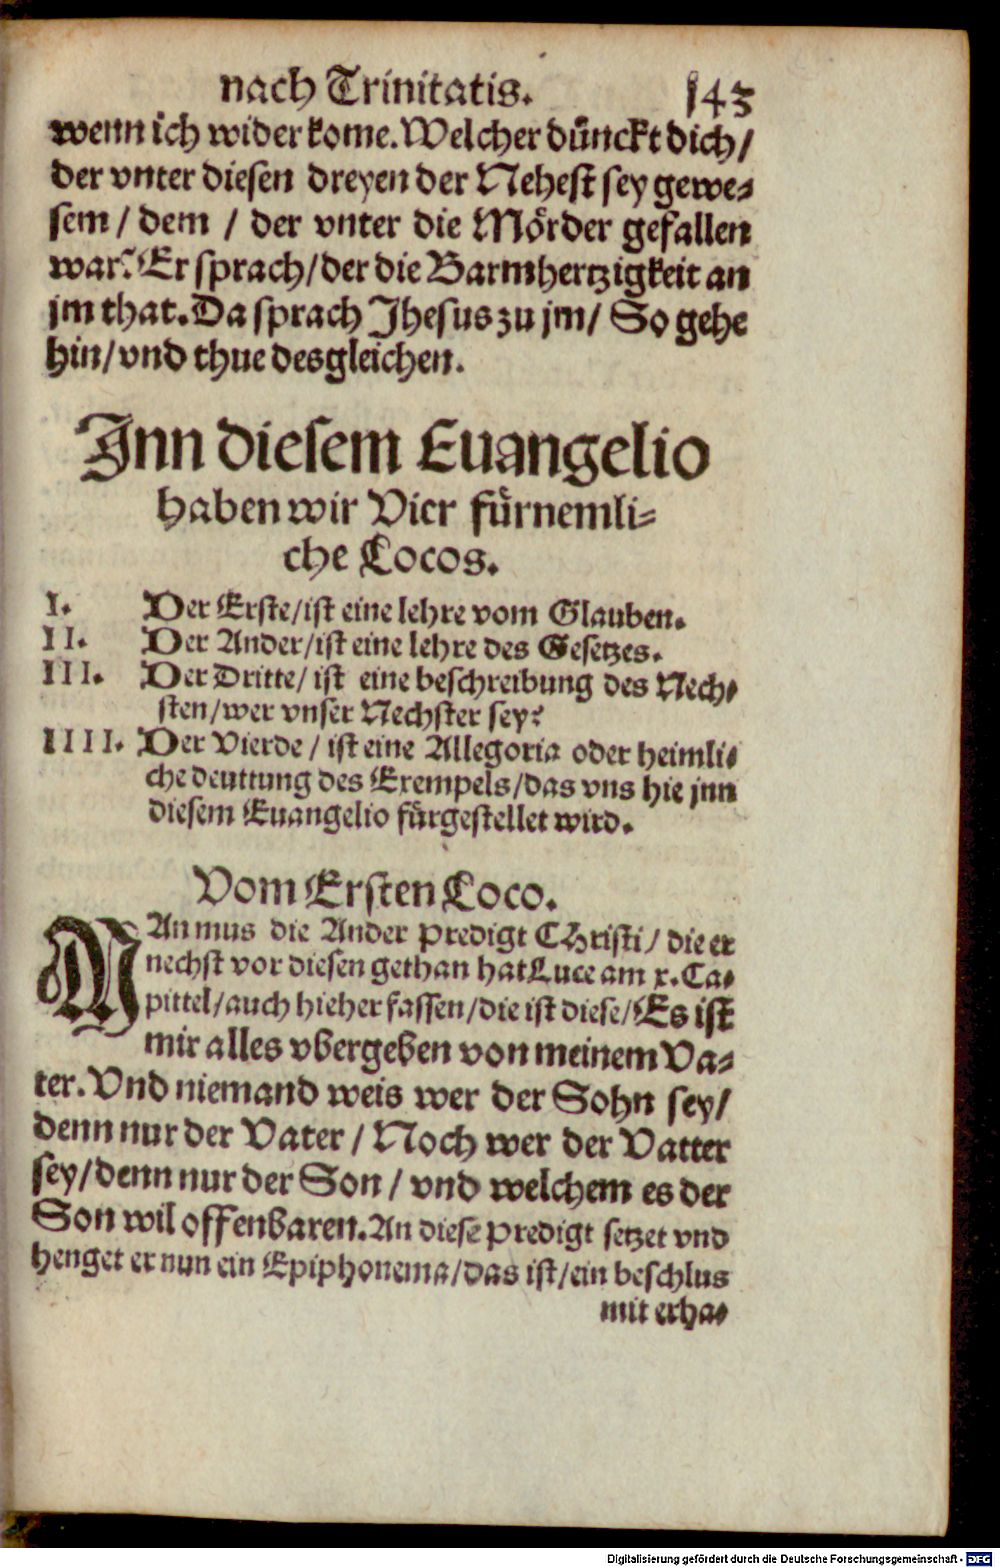 nach Trinitatis. 143
wenn ich wider kome. Welcher dünckt dich/
der vnter diesen dreyen der Nehest sey gewe-
sem / dem / der vnter die Mörder gefallen
war? Er sprach/ der die Barmhertzigkeit an
jm that. Da sprach Jhesus zu jm/ So gehe
hin/ vnd thue desgleichen.
Jnn diesem Euangelio
haben wir Vier fürnemli-
che Locos.
I. Der Erste/ ist eine lehre vom Glauben.
II. Der Ander/ ist eine lehre des Gesetzes.
III. Der Dritte/ ist eine beschreibung des Nech-
sten/ wer vnser Nechster sey?
IIII. Der Vierde / ist eine Allegoria oder heimli-
che deuttung des Exempels/ das vns hie jnn
diesem Euangelio fürgestellet wird.
Vom Ersten Loco.
MAn mus die Ander Predigt CHristi/ die er
nechst vor diesen gethan hat Luce am x. Ca-
pittel/ auch hieher fassen/ die ist diese/ Es ist
mir alles vbergeben von meinem Va-
ter. Vnd niemand weis wer der Sohn sey/
denn nur der Vater / Noch wer der Vatter
sey/ denn nur der Son / vnd welchem es der
Son wil offenbaren. An diese Predigt setzet vnd
henget er nun ein Epiphonema/ das ist/ ein beschlus
mit erha-
Digitalisierung gefördert durch die Deutsche Forschungsgemeinschaft - DFG